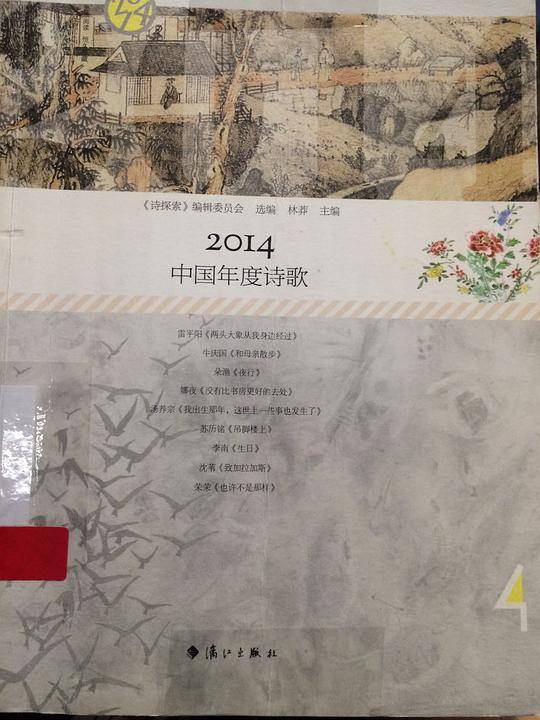 2014
《诗探索》编辑委员会 选编 林莽 主编
2014
中国年度诗歌
雷平阳《两头大象从我身边经过》
牛庆国《和母亲散步》
朵渔《夜行》
娜夜《没有比书房更好的去处》
汤养宗《我出生那年，这世上一些事也发生了》
苏历铭《吊脚楼上》
李南《生日》
沈苇《致加拉加斯》
荣荣《也许不是那样》
漓江出版社
4